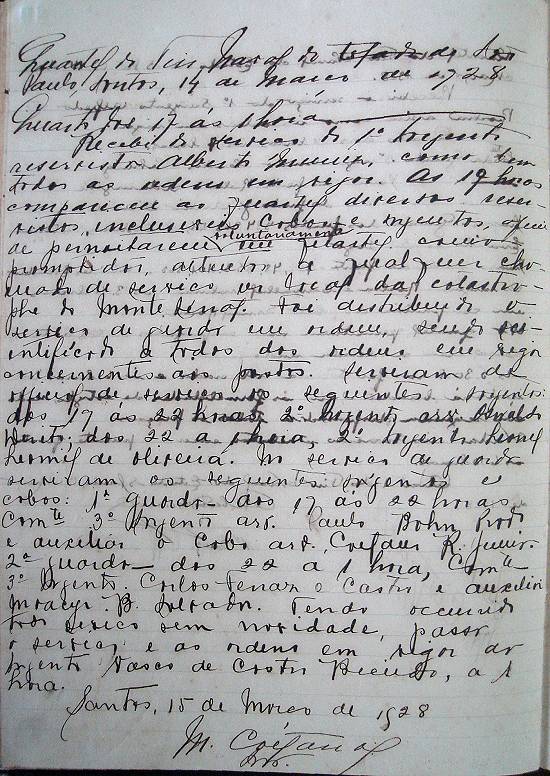 Quartel do Tiro Naval do
Paulo, Santos, 14 de Março de 1928
Quarto das 17 ás 1 hora
Recebi do serviço do 1º Sargento
reservista Alberto como bem
todos as ordens em vigor. As 19 horas
compareceu ao Quartel diversos reser-
vistas, inclusives Cabos e sargentos, afim
de pernoitarem voluntariamente no Quartel como
promptidos, attentos a qualquer cha-
mado de serviço no local da catastro-
phe do Monte Serrat. Foi distribuido o
serviço de guarda em ordem, sendo sci-
entificado a todos das ordens em vigor
concernentes aos postos. Serviram de
official de serviço os seguintes sargentos:
das 17 ás 22 horas 2º Sargento arv.
das 22 a 1 hora, 2º Sargento
de Oliveira. No serviço de guarda
serviram os seguintes sargentos e
cabos: 1ª guarda - das 17 ás 22 horas
Comte 3º Sargento arv. Paulo Bohn
e auxiliar o Cabo arv. Caetano R. Junior.
2ª guarda - das 22 a 1 hora, Comte
3º Sargento. Carlos Ferraz e Castro e auxiliar
Moacyr. B. Tendo occorrido
todo serviço sem novidade, passo
o serviço e as ordens em vigor ao
Sargento Vasco de Castro a 1
hora.
Santos, 15 de Março de 1928
M. Caetano